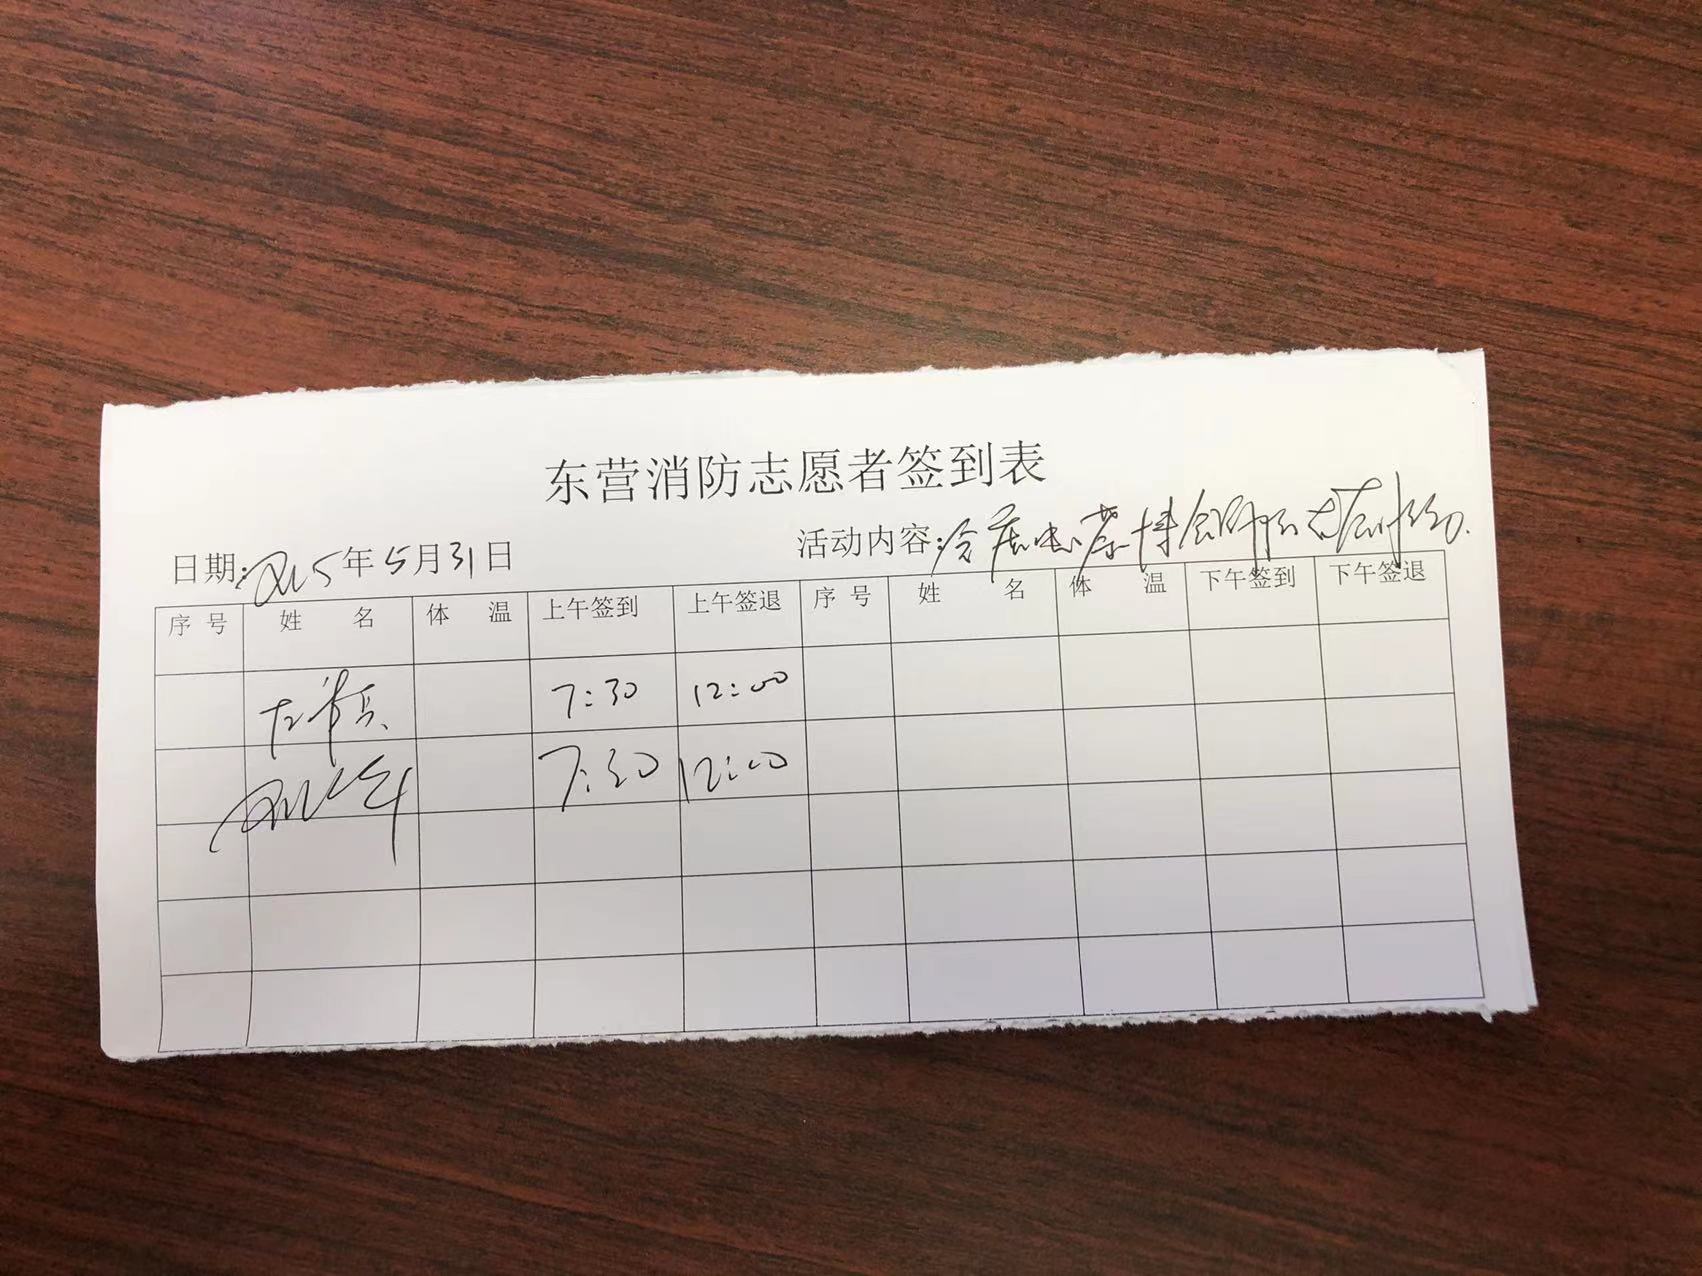 东营消防志愿者签到表
日期: 2025年5月31日 活动内容:
序号 姓名 体温 上午签到 上午签退 序号 姓名 体温 下午签到 下午签退
7:30 12:00
7:30 12:00